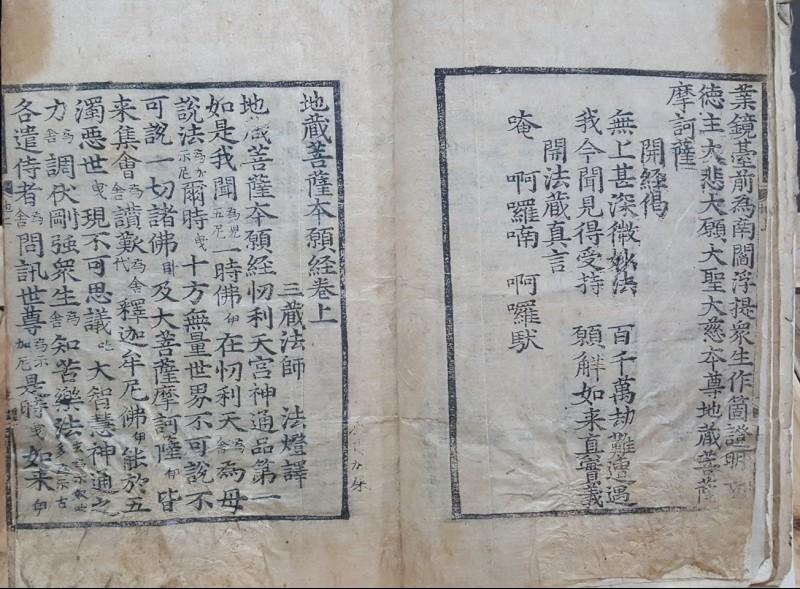 業鏡臺前為南閻浮提衆生作箇證明
德主大悲大願大聖大慈本尊地藏菩薩
摩訶薩
開經偈
無上甚深微妙法 百千萬劫難遭遇
我今聞見得受持 願解如来真實義
開法藏真言
唵 啊囉喃 啊囉馱
地藏菩薩本願經卷上
三藏法師 法燈譯
地藏菩薩本願經忉利天宮神通品第一
如是我聞 一時佛伊在忉利天為母
說法 爾時 十方無量世界不可說不
可說一切諸佛及大菩薩摩訶薩伊皆
来集會 讃歎 釋迦牟尼佛伊能於五
濁惡世 現不可思議 大智慧神通之
力 調伏剛强衆生 知苦樂法
各遣侍者 問訊世尊 是時 如来伊